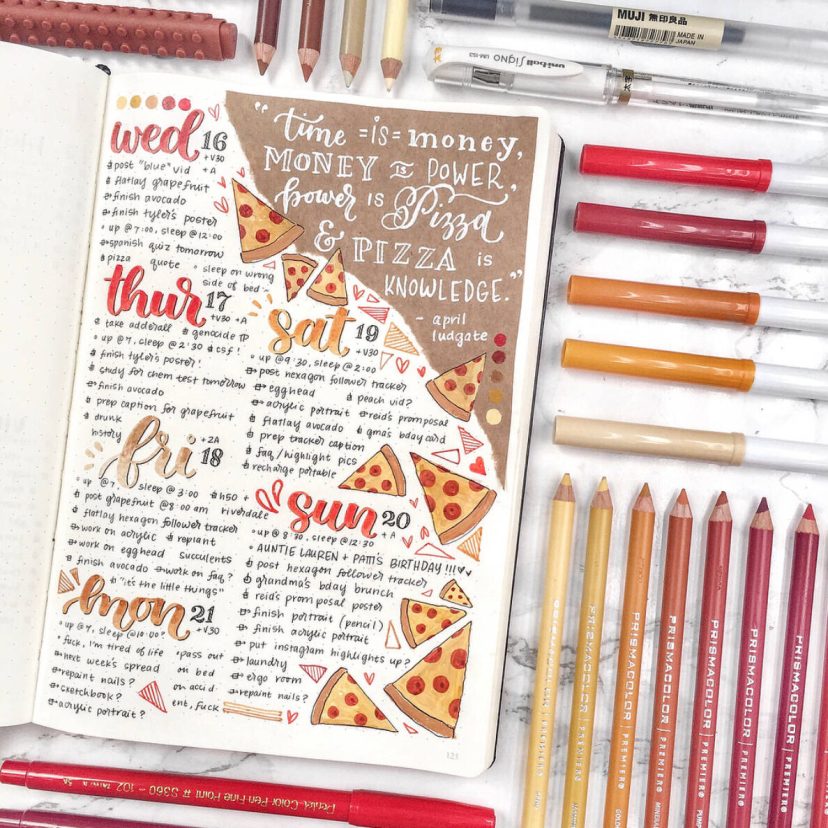 wed 16
+V30
post "blue" vid +A
flatlay grapefruit
finish avocado
finish tyler's poster
up @ 7:00, sleep @ 12:00
spanish quiz tomorrow
pizza quote
sleep on wrong
side of bed :-
thur 17
+V30 +A
take adderall
genocide TP
up @ 7, sleep @ 2:30
csf!
finish tyler's poster!
study for chem test tomorrow
finish avocado
prep caption for grapefruit
drunk
history
fri 18
+2A
up @ 7, sleep @ 3:00
h50 +
riverdale
post grapefruit @ 8:00 am
flatlay hexagon follower tracker
work on acrylic
replant
succulents
work on egghead
finish avocado
work on faq?
"it's the little things"
mon 21
+V30
up @ 7, sleep @ 10:00?
fuck, i'm tired of life
pass out
on bed
on accid
ent, fuck
next week's spread
repaint nails?
sketchbook?
acrylic portrait?
"time = is = money,
MONEY is POWER,
power is Pizza
& PIZZA is
KNOWLEDGE."
- april
ludgate
sat 19
+V30
up @ 9:30, sleep @ 2:00
post hexagon follower tracker
egghead
peach vid?
acrylic portrait
reid's promposal
flatlay avocado
gma's bday card
prep tracker caption
faq/highlight pics
recharge portable
sun 20
+A
up @ 8:30, sleep @ 12:30
AUNTIE LAUREN + PATTI'S BIRTHDAY!!!
post hexagon follower tracker
grandma's bday brunch
reid's promposal poster
finish portrait (pencil)
finish acrylic portrait
put instagram highlights up?
laundry
ergo room
repaint nails?
121
MUJI 無印良品
MADE IN
JAPAN
uni-ball Signo UM-153
PRISMACOLOR PREMIER
PRISMACOLOR PREMIER
PRISMACOLOR PREMIER
PRISMACOLOR PREMIER
PRISMACOLOR PREMIER
Pentel Color Pen Fine Point # S360 - 102